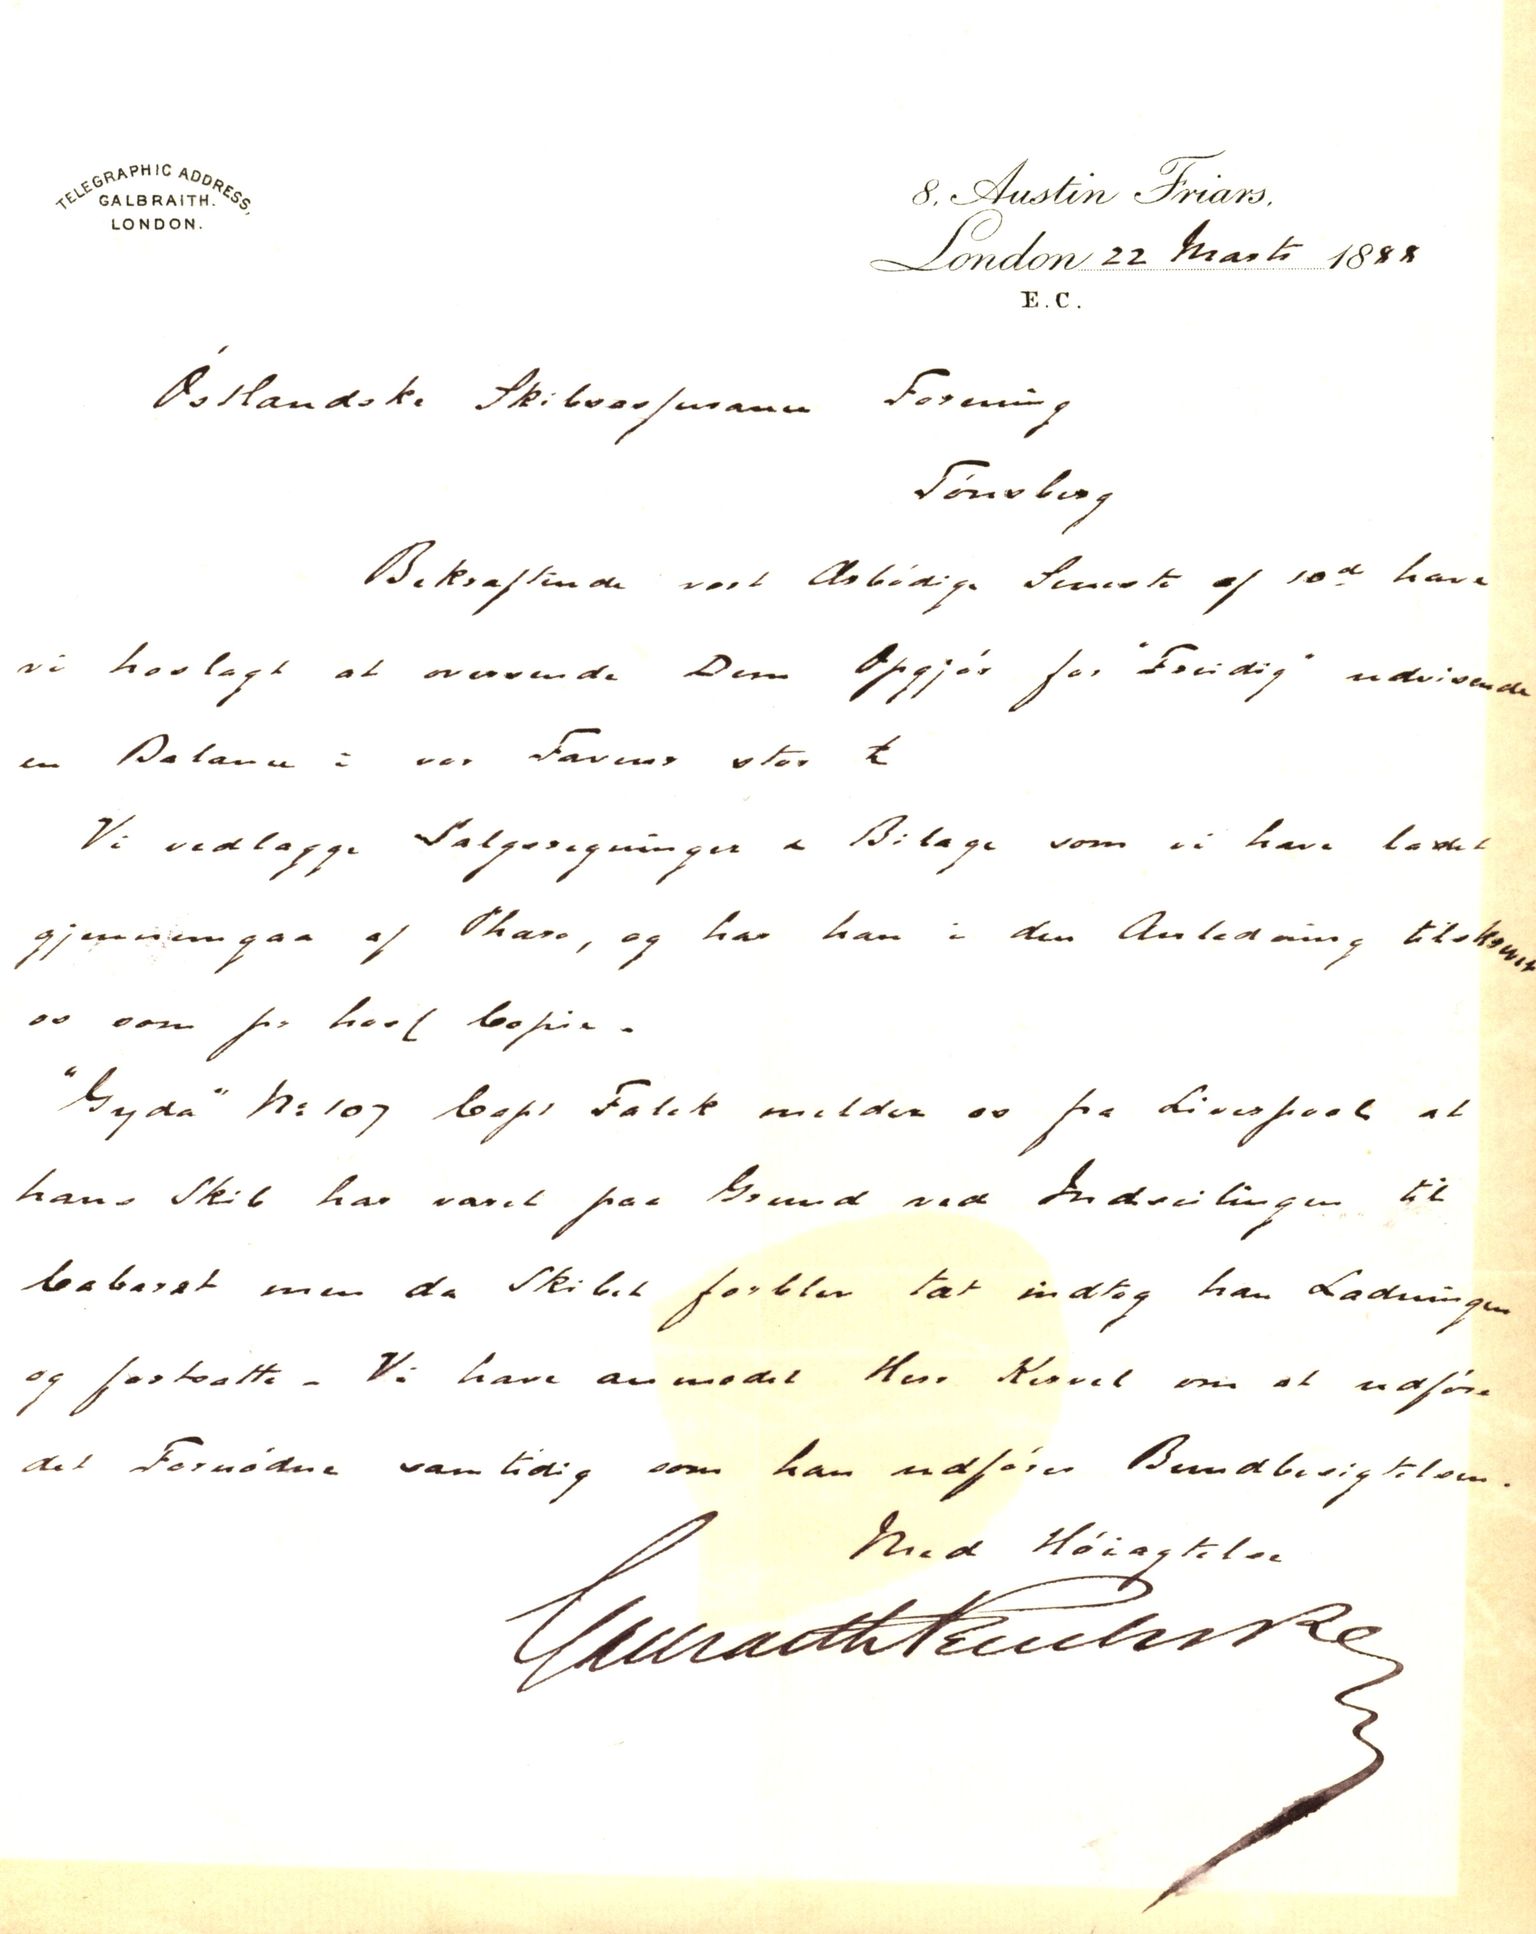 TELEGRAPHIC ADDRESS,
GALBRAITH.
LONDON.
8, Austin Friars,
London 22 Marts 1888
E.C.
Östlandske Skibsassurance Forening
Tönsberg
Bekræftende vort Ærbödige Seneste af 10d have
vi hoslagt at oversende Dem Opgjör for "Freidig" udvisende
en Balance i vor Faveur stor £
Vi vedlægge Salgsregninger & Bilage som vi have ladet
gjennemgaa af Pharo, og har han i den Anledning tilskrevet
os som pr hosf Copie.
"Gyda" No 107 Capt Falck melder os fra Liverpool at
hans Skib har været paa Grund ved Indseilingen til
men da Skibet forblev tæt indtog han Ladningen
og fortsatte. Vi have anmodet Herr om at udföre
det Fornödne samtidig som han udförer Bundbesigtelsen.
Med Höiagtelse
Galbraith Pembroke